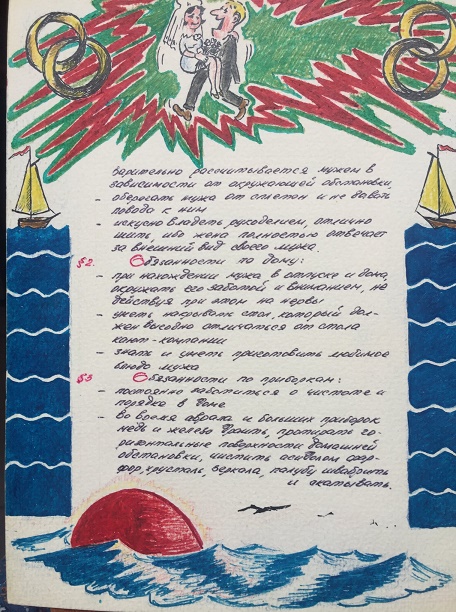 варительно рассчитывается мужем в
зависимости от окружающей обстановки
- оберегать мужа от сметан и не давать
повода к ним
- искусно владеть рукоделием, отлично
шить, ибо жена полностью отвечает
за внешний вид своего мужа
§2. Обязанности по дому:
- при нахождении мужа в отпуске и дома,
окружать его заботой и вниманием, не
действуя при этом на нервы
- уметь накрывать стол, который дол-
жен выгодно отличаться от стола
кают-компании
- знать и уметь приготовить любимое
блюдо мужа
§3 Обязанности по приборкам:
- постоянно заботиться о чистоте и
порядке в доме
- во время аврала и больших приборок
медь и железо драить, протирать го-
ризонтальные поверхности домашней
обстановки, чистить асидолом фар-
фор, хрусталь, зеркала, палубу швабрить
и окатывать.